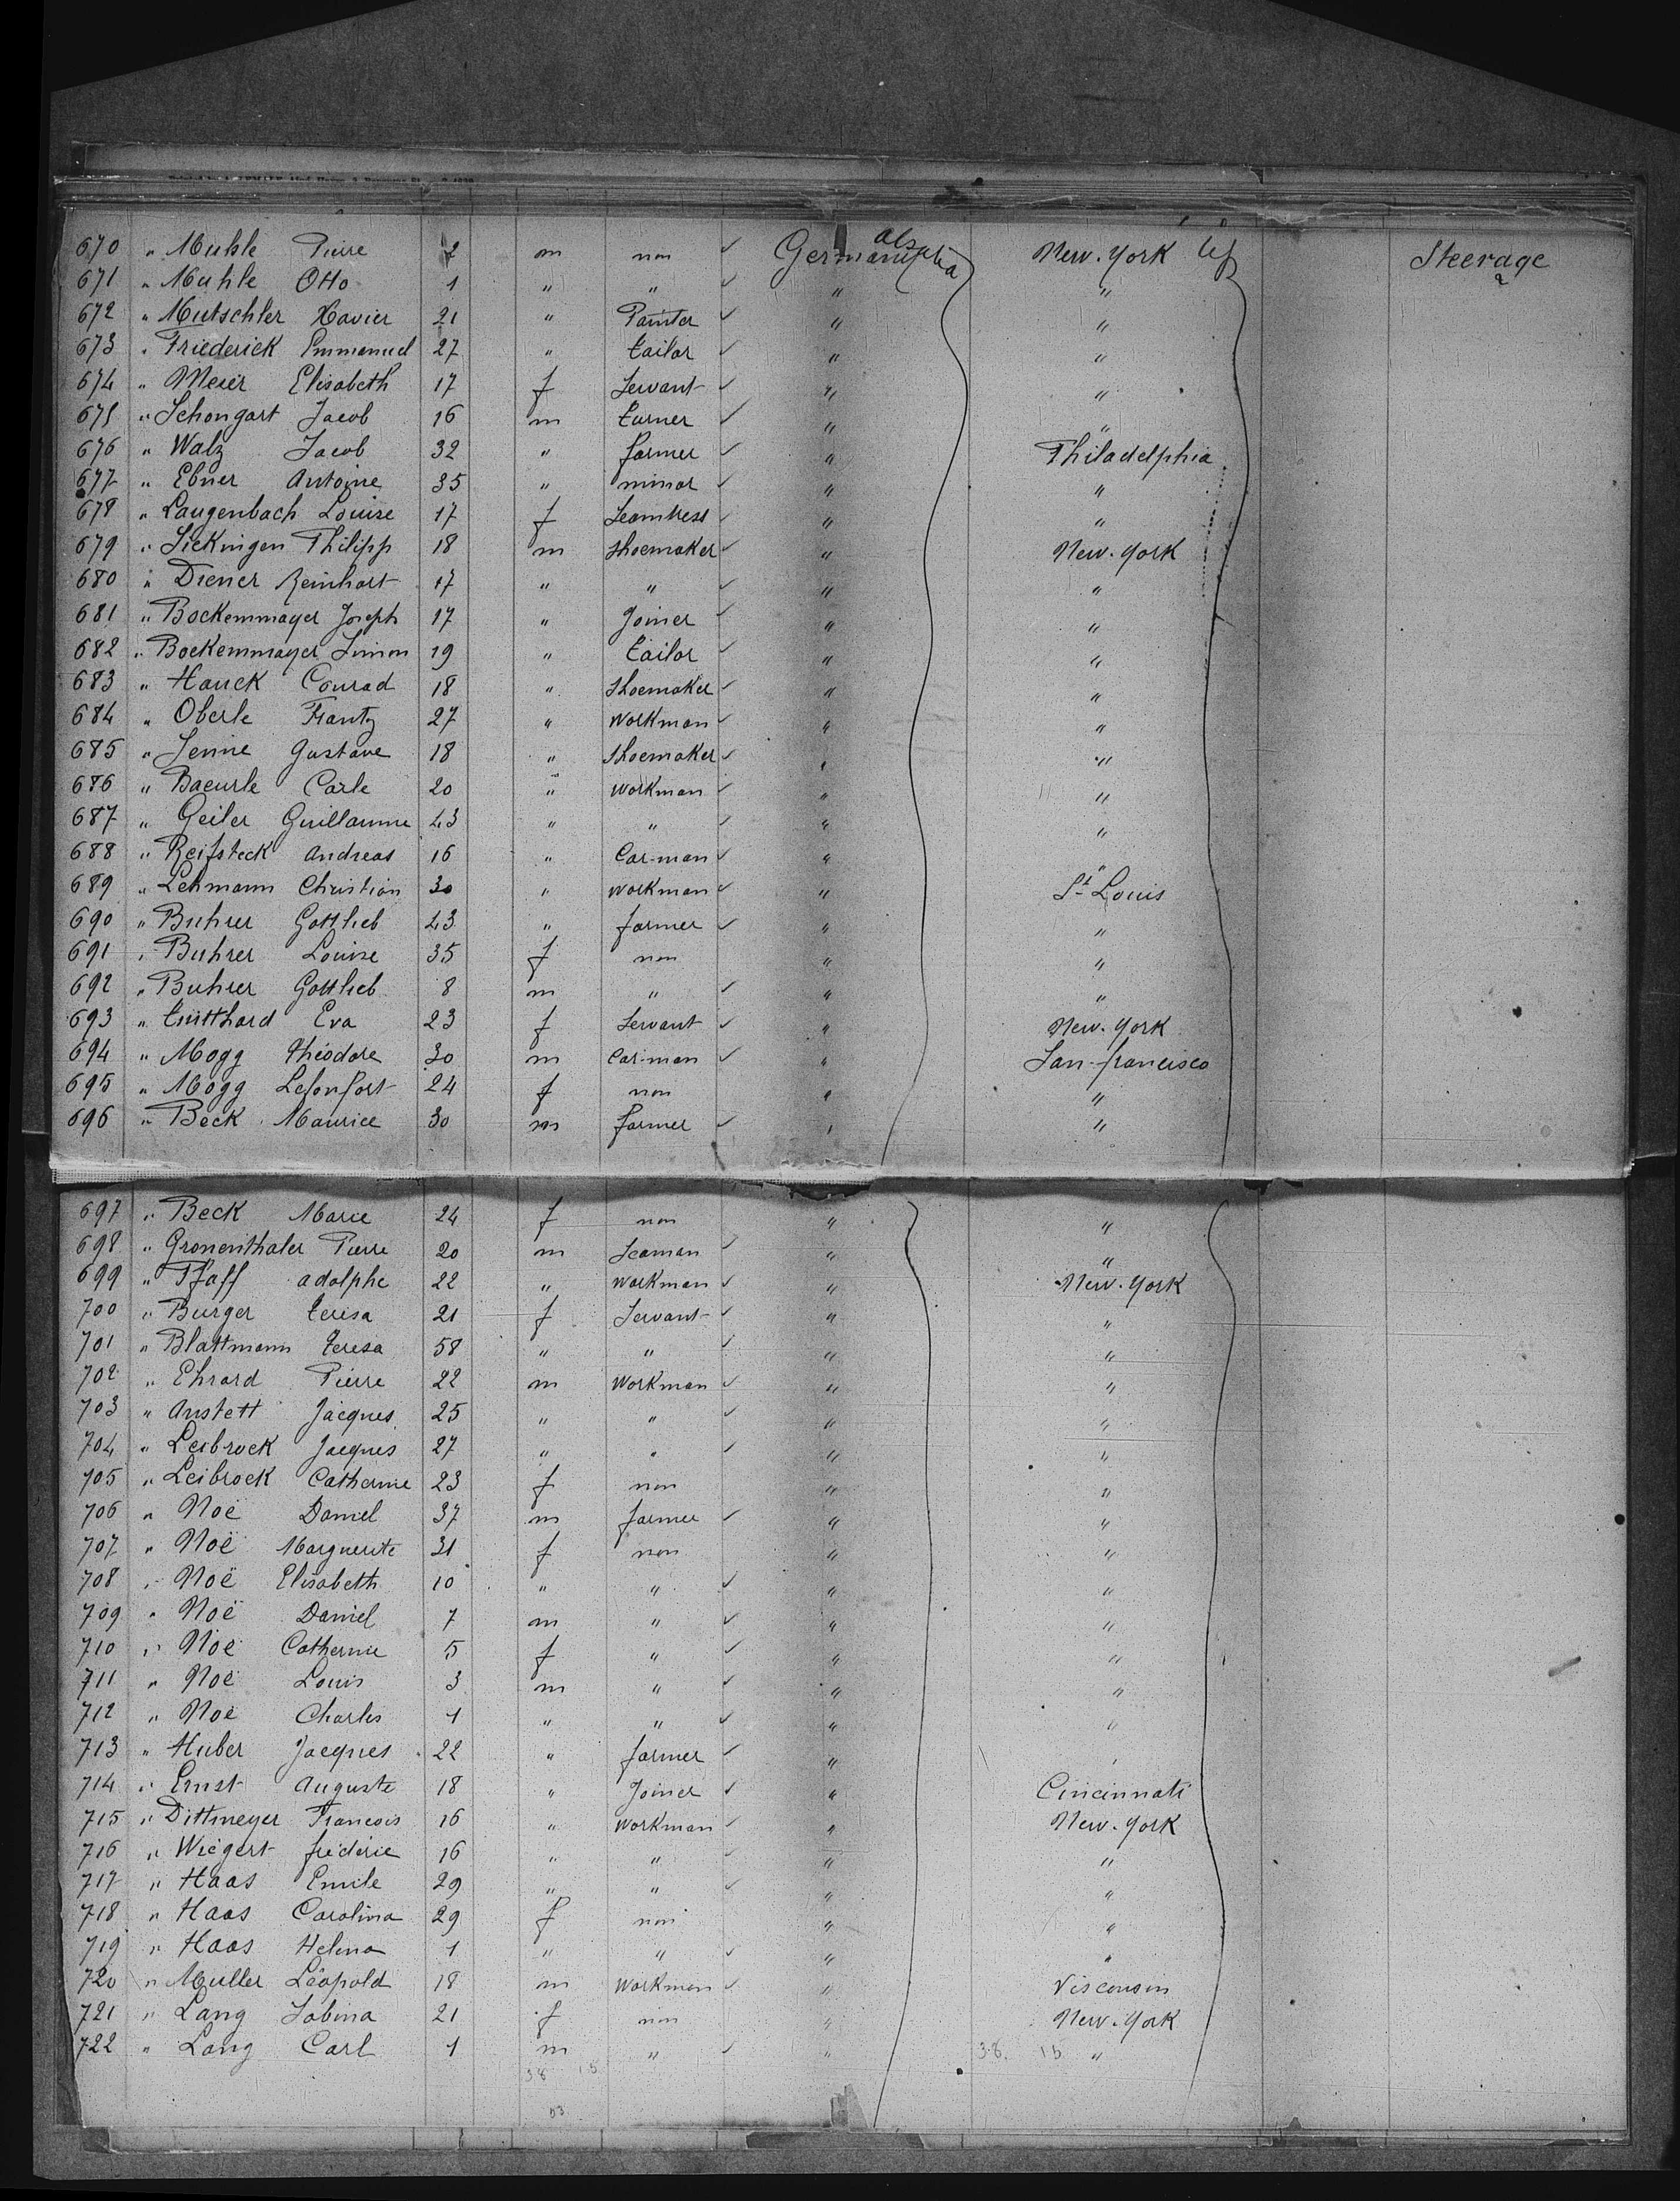 670 " Muhle Pierre 2 m non ✓ Germany New-York Steerage
671 " Muhle Otto 1 " " ✓ " "
672 " Mutschler Xavier 21 " Painter ✓ " "
673 " Friederick Emmanuel 27 " tailor ✓ " "
674 " Meier Elisabeth 17 f Servant ✓ " "
675 " Schongart Jacob 16 m turner ✓ " "
676 " Walz Jacob 32 " farmer ✓ " Philadelphia
677 " Ebner Antoine 35 " minor ✓ " "
678 " Laugenbach Louise 17 f Seamtress ✓ " "
679 " Sickingen Philipp 18 m Shoemaker ✓ " New-York
680 " Diener Reinhart 17 " " ✓ " "
681 " Bockemmayer Joseph 17 " Joiner ✓ " "
682 " Bockemmayer Simon 19 " tailor ✓ " "
683 " Hauck Conrad 18 " Shoemaker ✓ " "
684 " Oberle Frantz 27 " Workman ✓ " "
685 " Jenne Gustave 18 " Shoemaker ✓ " "
686 " Baeurle Carle 20 " workman ✓ " "
687 " Geiler Guillaume 43 " " ✓ " "
688 " Reifsteck Andreas 16 " Car-man ✓ " "
689 " Lehmann Christian 30 " workman ✓ " St Louis
690 " Buhrer Gottlieb 43 " farmer ✓ " "
691 " Buhrer Louise 35 f non " "
692 " Buhrer Gottlieb 8 m " ✓ " "
693 " Eva 23 f Servant ✓ " New-York
694 " Mogg théodore 30 m Car-man ✓ " San-francisco
695 " Mogg 24 f non " "
696 " Beck Maurice 30 m farmer ✓ " "
697 " Beck Marie 24 f non " "
698 " Gronenthaler Pierre 20 m Seaman ✓ " "
699 " Pfaff adolphe 22 " Workman ✓ " New-York
700 " Burger teresa 21 f Servant ✓ " "
701 " Blattmann teresa 58 " " ✓ " "
702 " Ehrard Pierre 22 m Workman ✓ " "
703 " Anstett Jacques 25 " " ✓ " "
704 " Leibrock Jacques 27 " " ✓ " "
705 " Leibrock Catherine 23 f non " "
706 " Noë Daniel 37 m farmer ✓ " "
707 " Noë Marguerite 31 f non " "
708 " Noë Elisabeth 10 " " ✓ " "
709 " Noë Daniel 7 m " ✓ " "
710 " Noë Catherine 5 f " ✓ " "
711 " Noë Louis 3 m " ✓ " "
712 " Noë Charles 1 " " ✓ " "
713 " Huber Jacques 22 " farmer ✓ " "
714 " Ernst Auguste 18 " Joiner ✓ " Cincinnati
715 " Dittmeyer Francois 16 " Workman ✓ " New-York
716 " Wiegert frédéric 16 " " ✓ " "
717 " Haas Emile 29 " " ✓ " "
718 " Haas Carolina 29 f non " "
719 " Haas Helena 1 " " ✓ " "
720 " Muller Léopold 18 m Workman ✓ " Visconsin
721 " Lang Sabina 21 f non " New-York
722 " Lang Carl 1 m " ✓ " "
38 15 38. 15
53